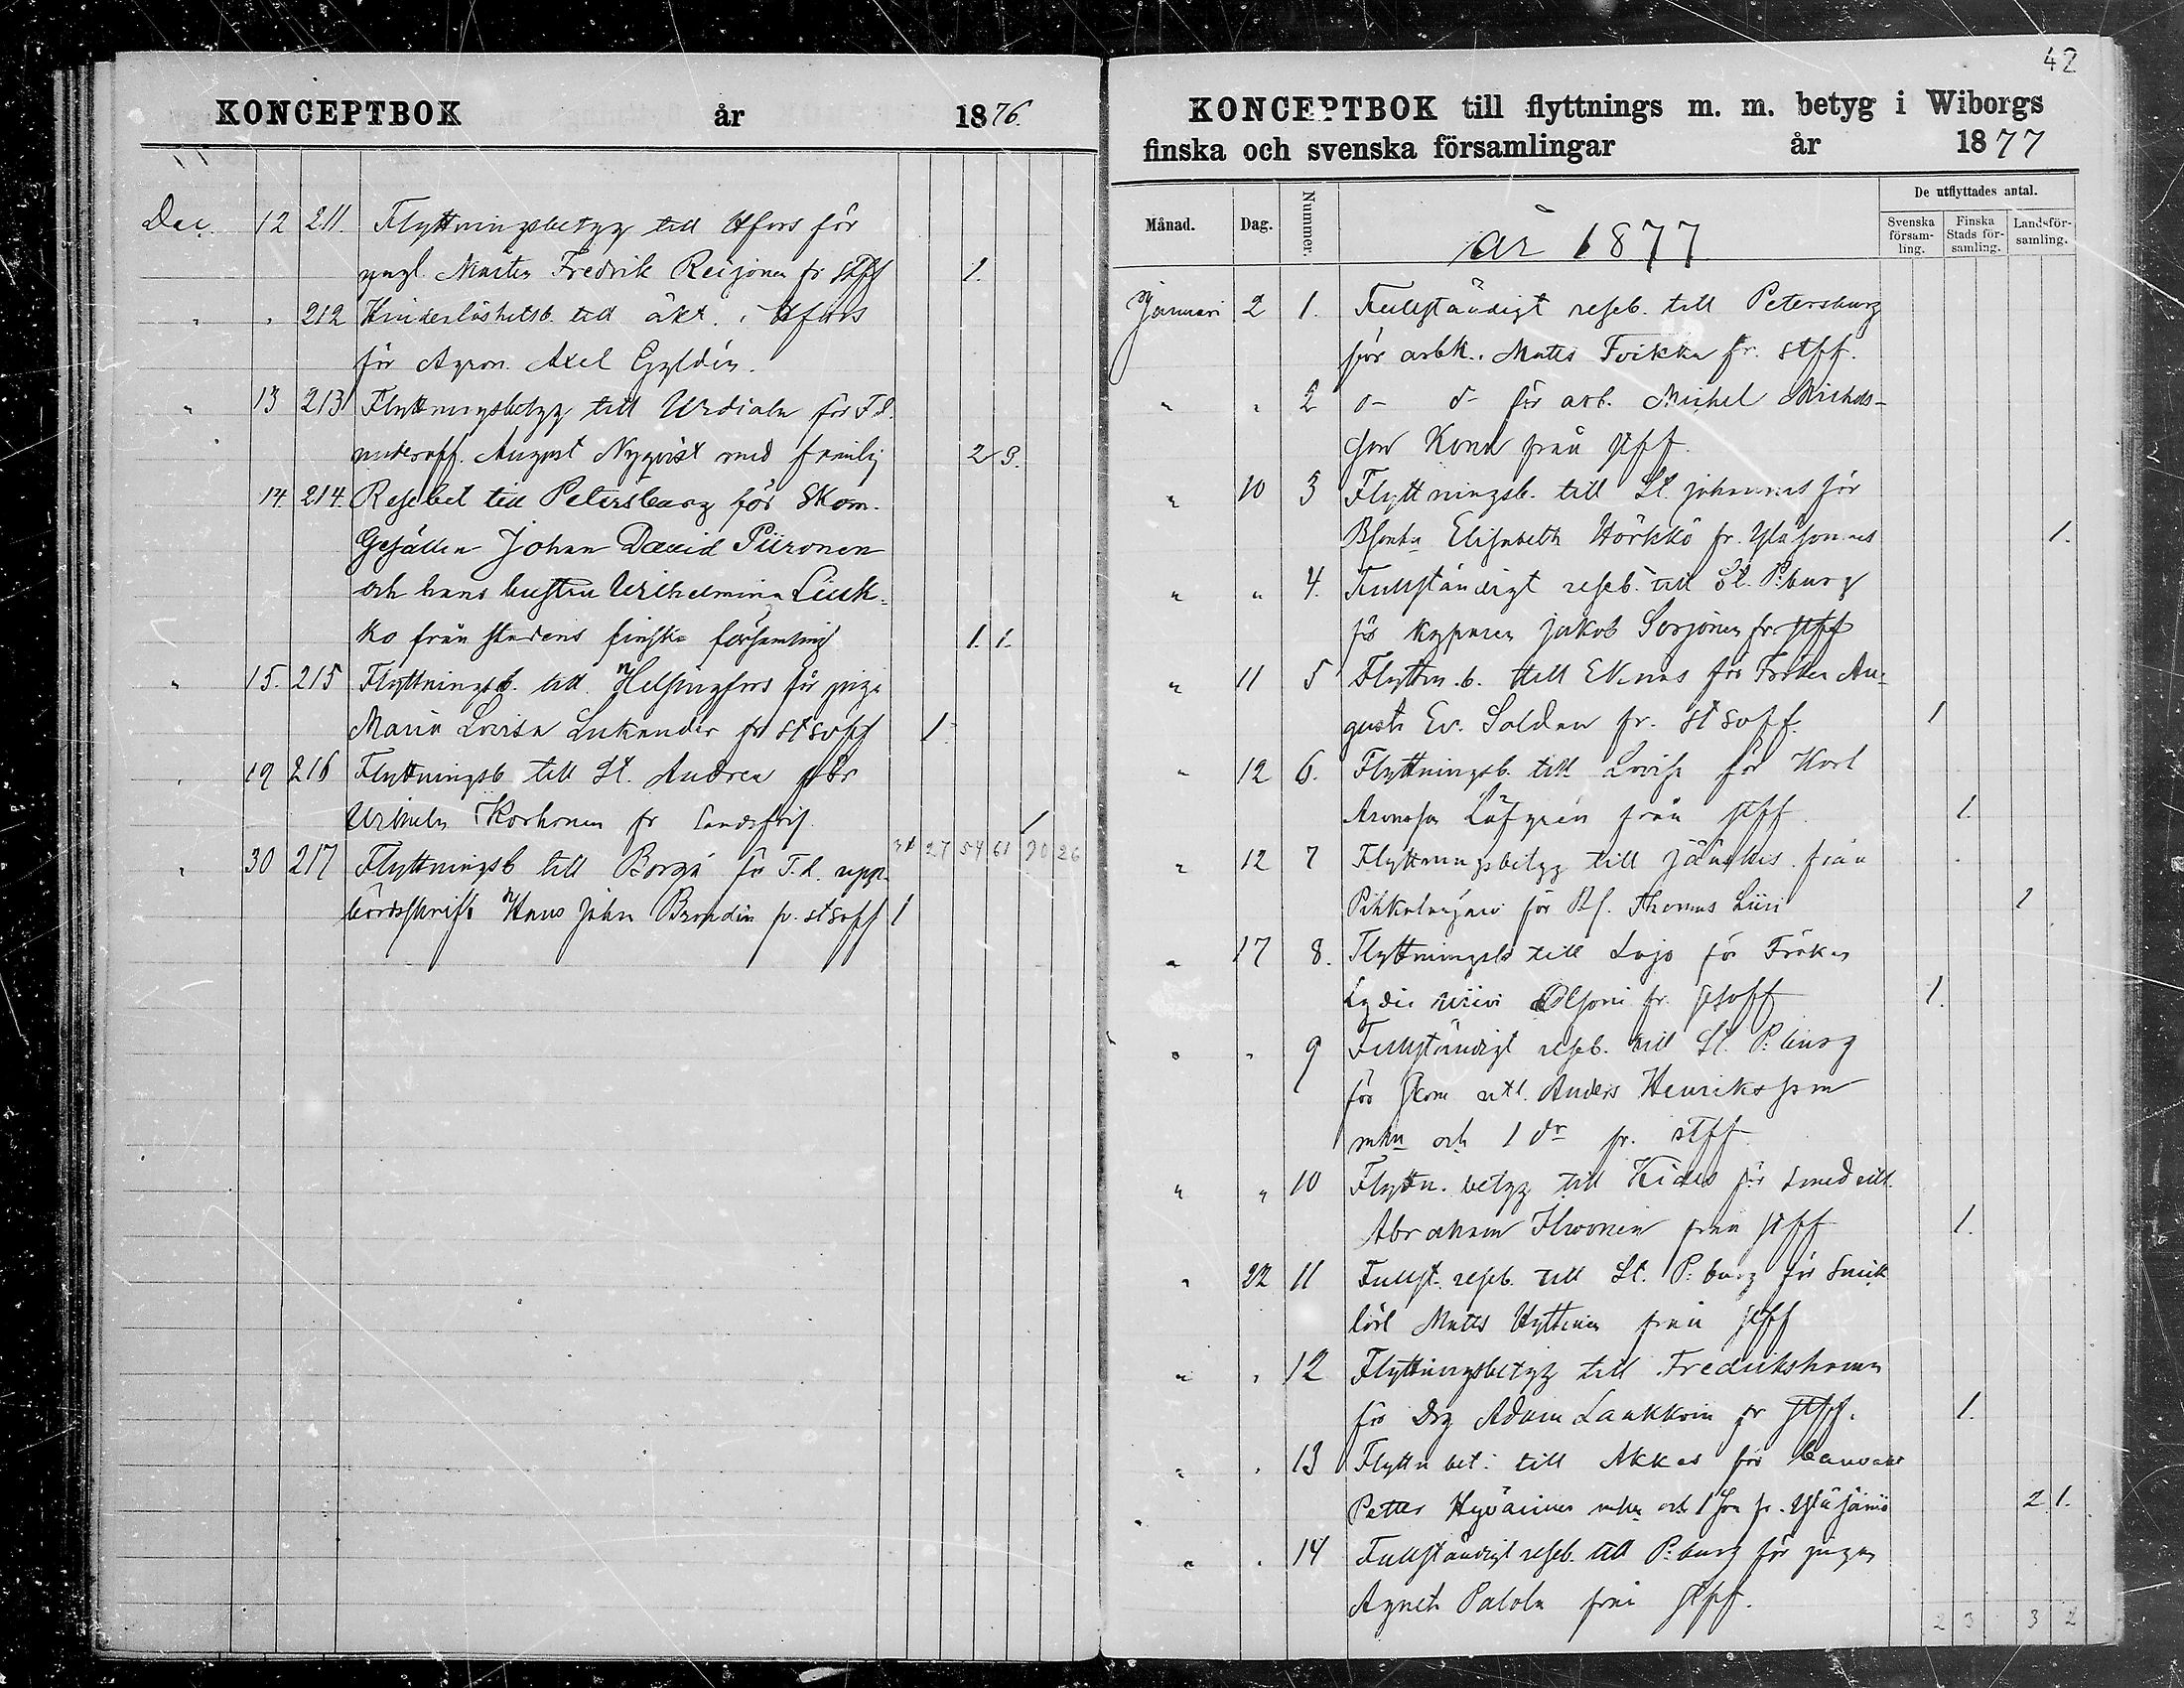 KONCEPTBOK år 1876.
Dec. 12 211. Flyttningsbetyg till Hfors för
yngl. Mårten Fredrik Reijonen fr stff 1.
" " 212 Hinderlöshetsb. till äkt. i Hfors
för Agron. Axel Gyldén.
" 13 213 Flyttningsbetyg till Urdiala för F.d.
underoff. August Nyqvist med familj 2 3.
14. 214. Resebet till Petersburg för Skom.
Gesällen Johan David Piironen
och hans hustru Wilhelmina Liuk-
ko från stadens finska församling 1. 1.
" 15. 215 Flyttningsb. till Helsingfors för piga
Maria Lovisa Lukander fr st sv ff 1.
" 19 216 Flyttningsb till St. Andrea för
Wilhelm Korhonen fr landsförs. 1
27 54 61 20 26
" 30 217 Flyttningsb till Borgå för T.d. upp-
bördsskrifv Hans John Brondin fr. st sv ff 1
42
KONCEPTBOK till flyttnings m. m. betyg i Wiborgs
finska och svenska församlingar år 1877
Månad. Dag. Nummer. år 1877 De utflyttades antal.
Svenska försam-ling. Finska Stads för-samling. Landsför-samling.
Januari 2 1. Fullständigt reseb. till Petersburg
för arbk. Matts Toikka fr. stff.
" " 2 o- o- för arb. Michel Michels-
son Konu från stff
" 10 3 Flyttningsb. till St. Johannes för
Bsonha Elisabeth Hörkkö fr. 1.
" " 4. Fullständigt reseb. till St. P:burg
för kyparen Jakob Sorjonen fr stff
" 11 5 Flyttn.b. till Ekenäs för Fröken Au-
gusta Ev. Soldan fr. st sv ff. 1
" 12 6. Flyttningsb. till Lovisa för Karl
Aronsson Löfgren från stff 1.
" 12 7 Flyttningsbetyg till Jääskis från
för Bs. Thomas Liiri 1
" 17 8. Flyttningsb till Lojo för Fröken
Lydia fr. st sv ff 1.
" " 9 Fullständigt reseb. till St. P:burg
för Skom Anders Henriksson
mhu och 1 dr fr. stff
" " 10 Flyttn. betyg till Kides för smed
Abraham Ihvonen från stff 1.
" 22 11 Fullst. reseb. till St. P:burg för Snick
lärl Matts Hyttinen från stff
" " 12 Flyttningsbetyg till Fredrikshamn
för Drg Adam Laukkoin fr stff. 1.
" " 13 Flyttn bet: till Akkas för
Petter Hyvärinen mhu och 1 son fr. 2 1.
" " 14 Fullständigt reseb. till P:burg för pigan
Agneta Palola från stff.
2 3 3 2